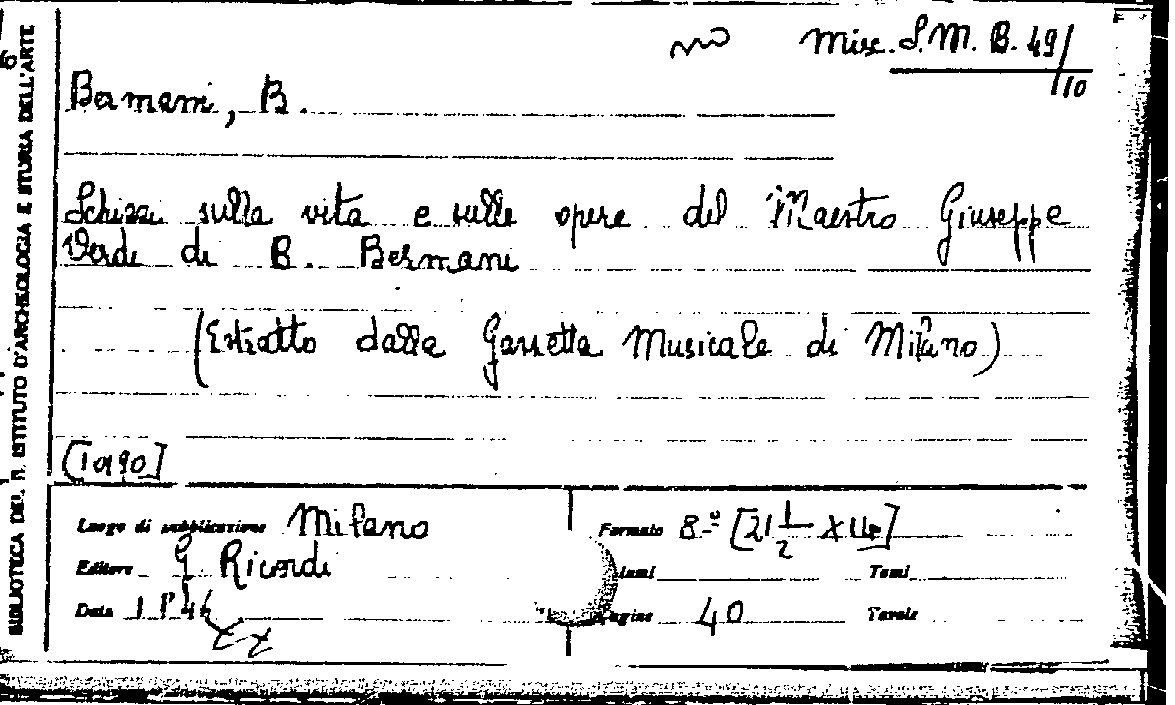 Misc. S.M. B. 49/10
Bermani, B.
Schizzi sulla vita e sulle opere del Maestro Giuseppe
Verdi di B. Bermani
(Estratto dalla Gazzetta Musicale di Milano)
Luogo di pubblicazione Milano
Formato 8-º [21 1/2 x 14]
Editore G. Ricordi
Volumi
Tomi
Data 1846
Pagine 40
Tavole
BIBLIOTECA DEL R. ISTITUTO D'ARCHEOLOGIA E STORIA DELL'ARTE